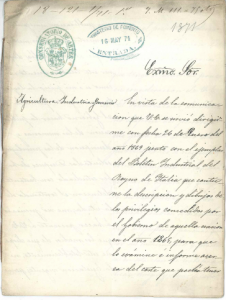 1871
16 MAY 71
ENTRADA
Exmo. Sor.
Agricultura Industria General
En vista de la comunica-
ción que V.E. se sirvió dirigir-
me con fecha 26 de Enero del
año 1869 junto con el ejemplar
del Boletin Industrial del
Reyno de Italia que contie-
ne la descripcion y dibujos de
los privilegios concedidos por
el Gobierno de aquella nacion
en el año 1867, para que
lo examine e informe acer-
ca del coste que podria tener